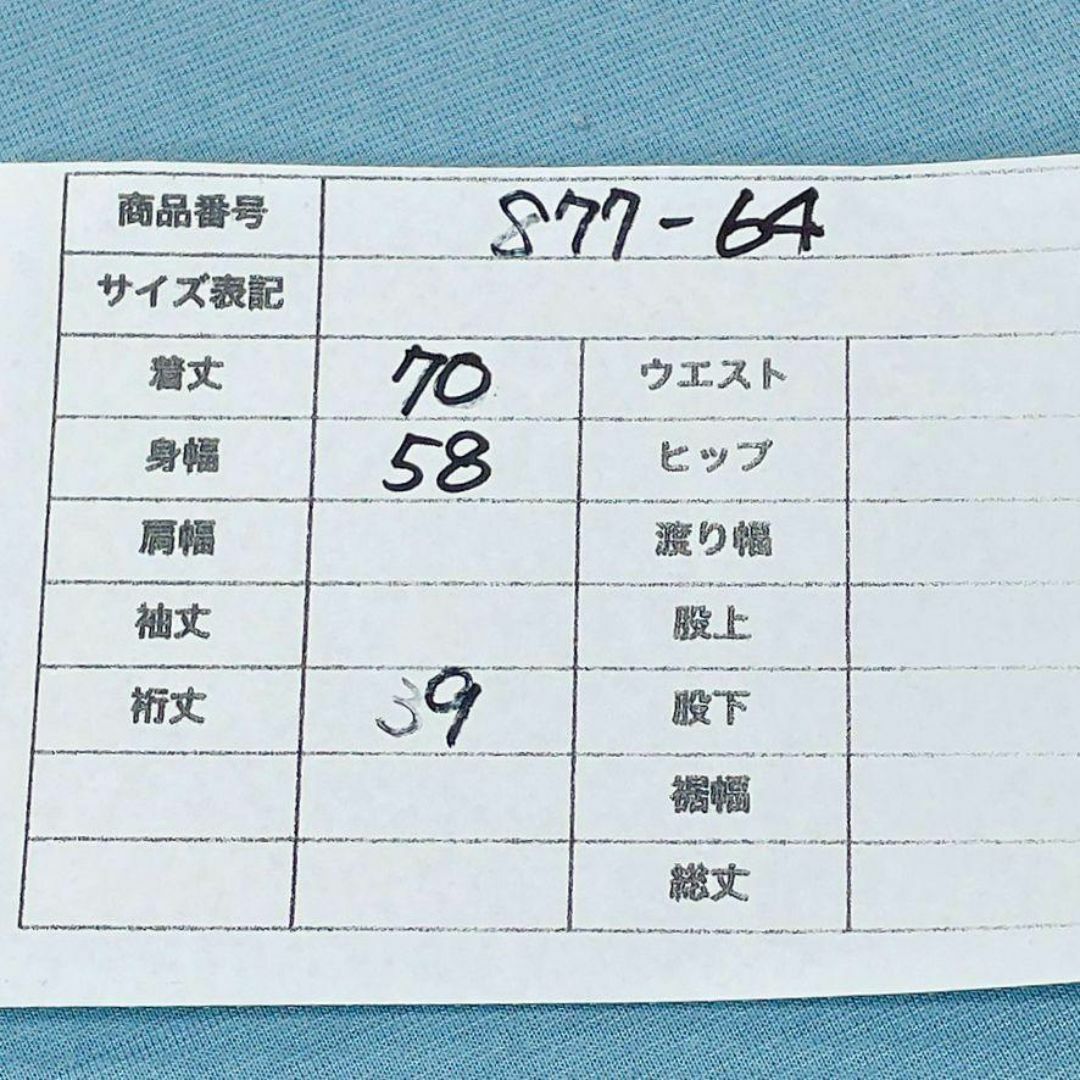 商品番号 877-64
サイズ表記
着丈 70 ウエスト
身幅 58 ヒップ
肩幅 渡り幅
袖丈 股上
裄丈 39 股下
裾幅
総丈